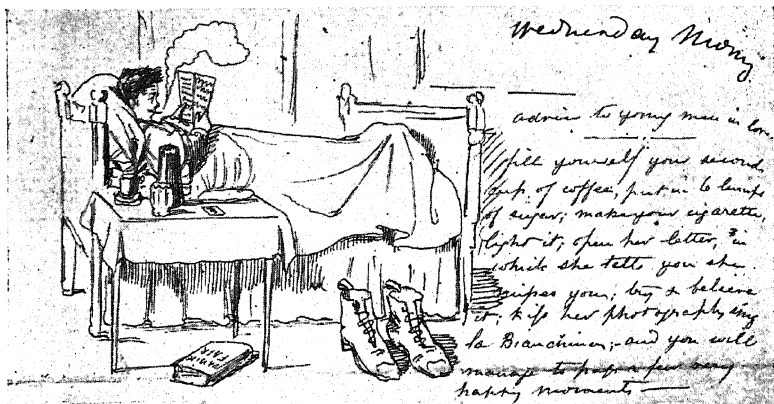 Wednesday Morng
advice to young men in love
fill yourself your second
cup of coffee, put in 6 lumps
of sugar; make your cigarette,
light it; open her letter, in
which she tells you she
you; try & believe
it; kiss her photograph, sing
la ; - and you will
manage to pass a few very
happy moments —
FAIR